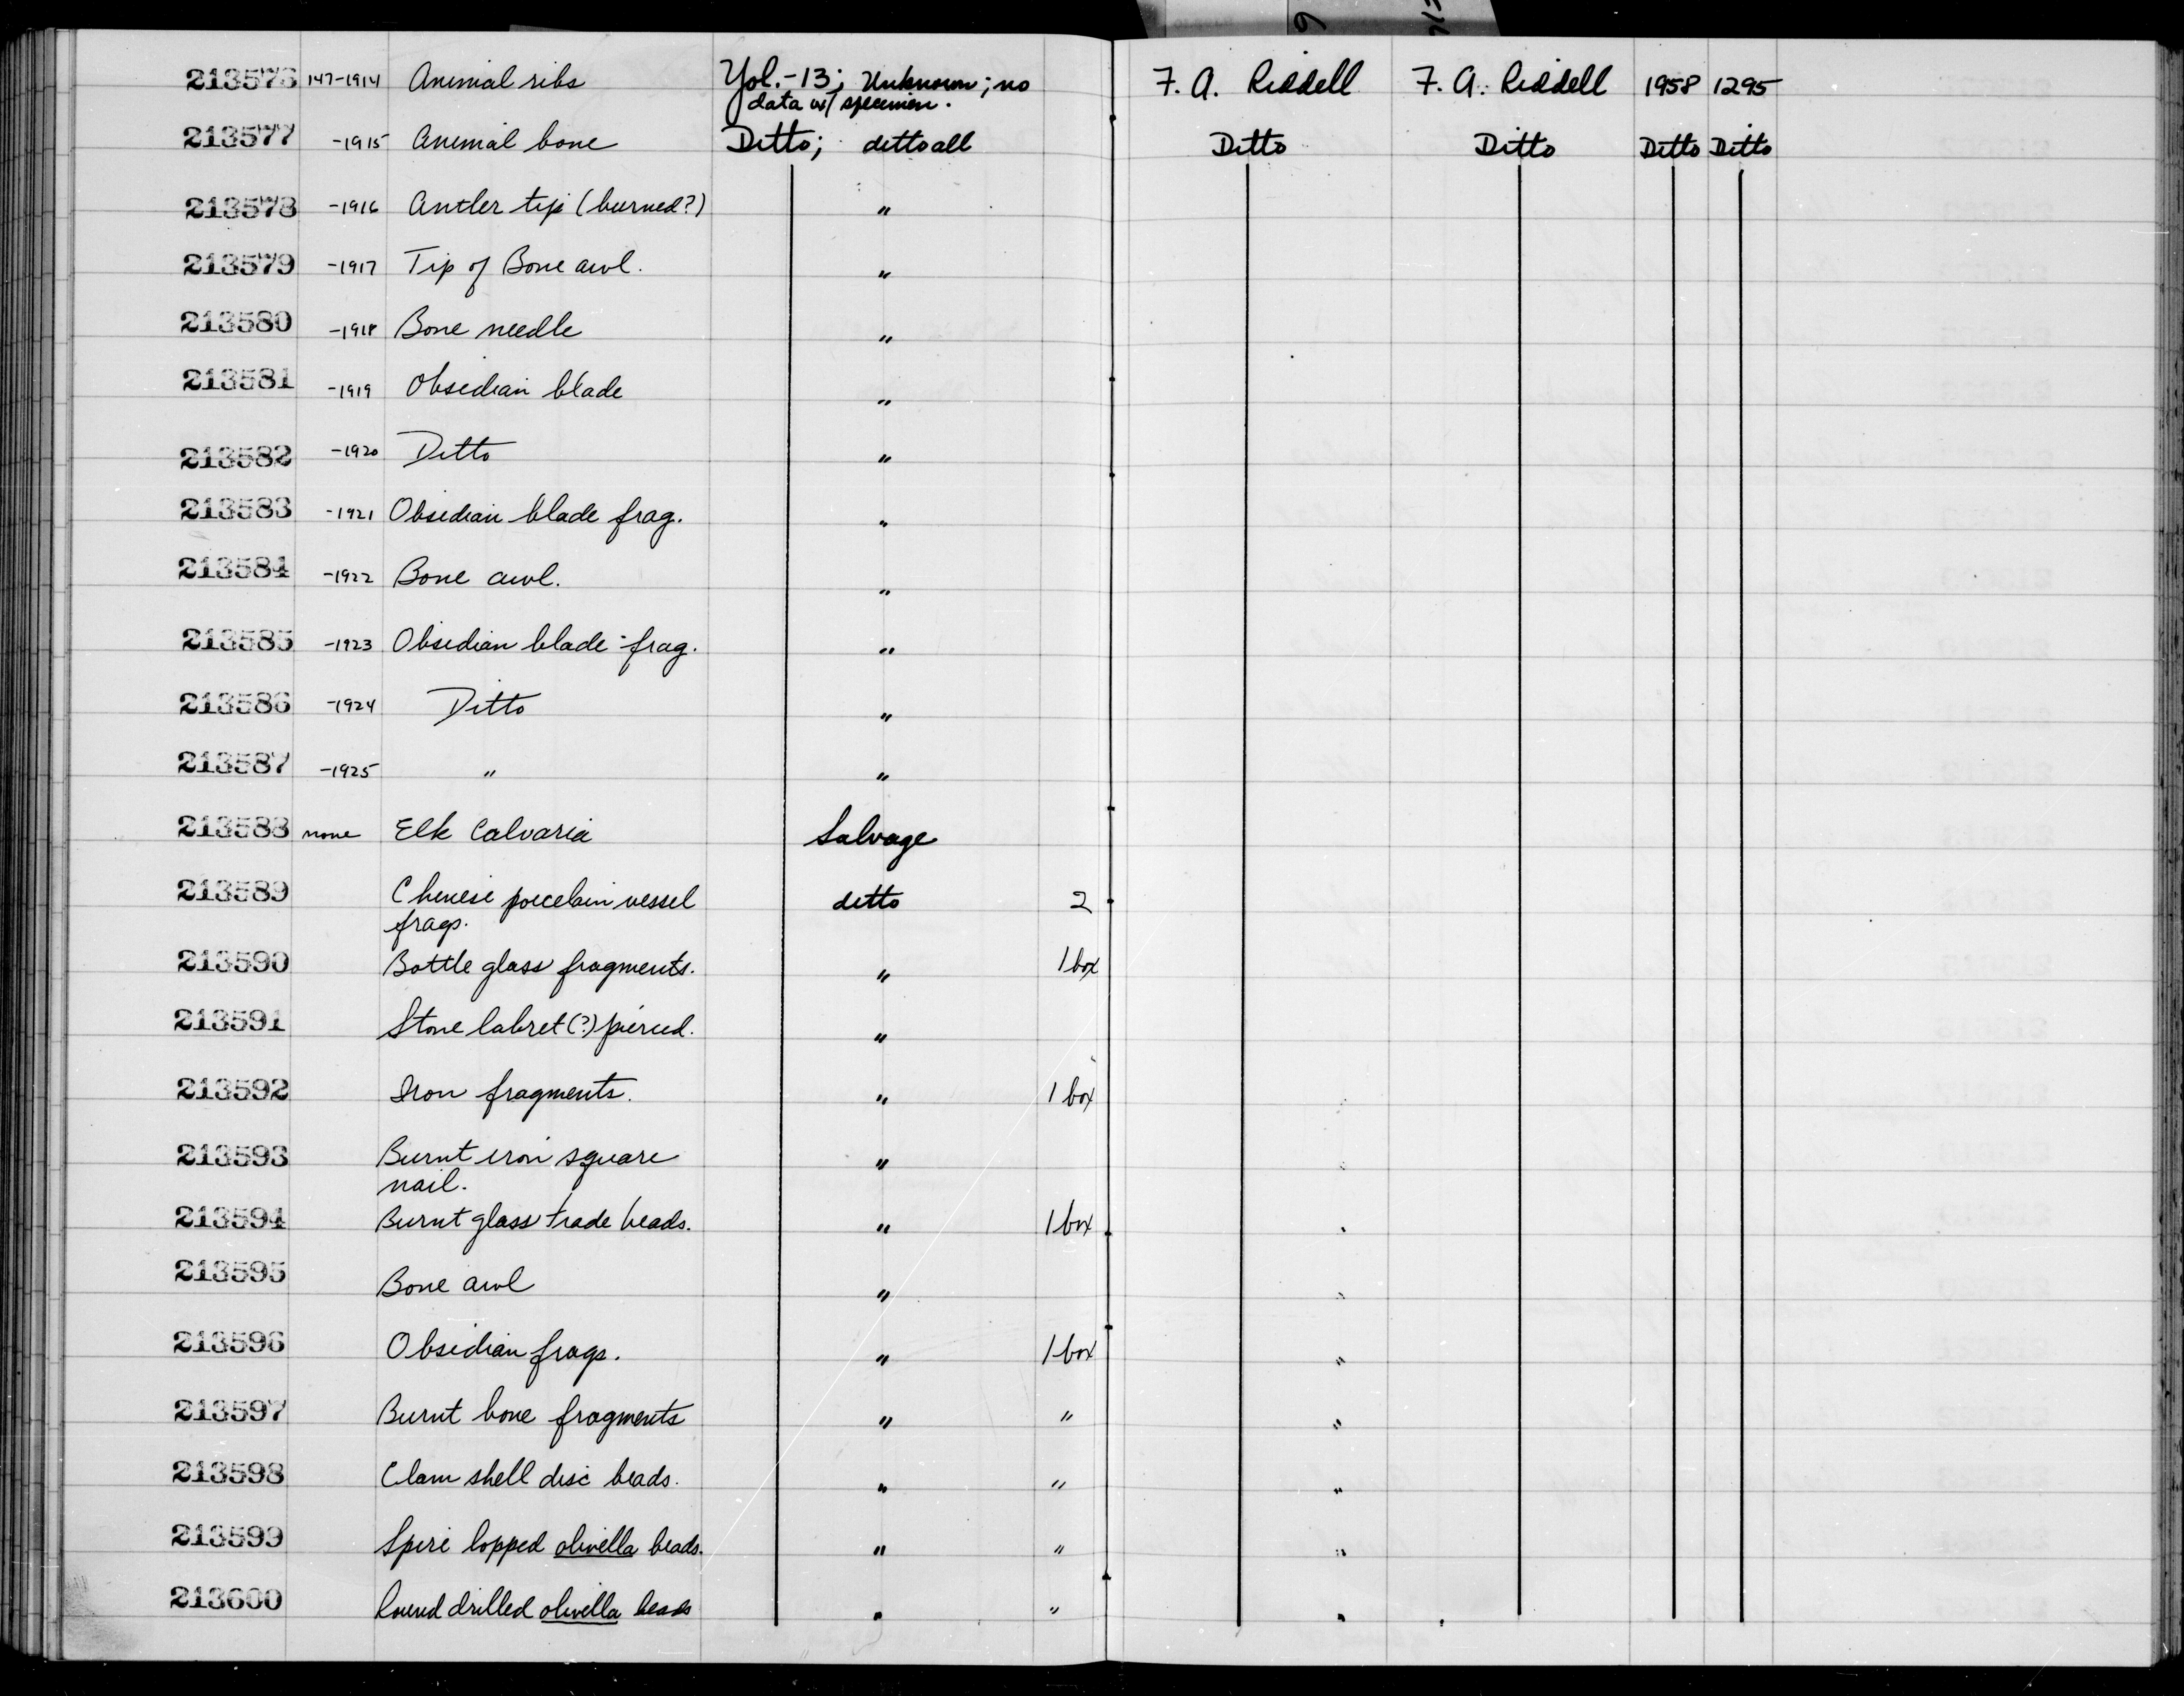 213576 147-1914 Animal ribs Yol.-13; Unknown; no F. A. Riddell F. A. Riddell 1958 1295
data w/ specimen.
213577 -1915 Animal bone Ditto; ditto all Ditto Ditto Ditto Ditto
213578 -1916 Antler tip (burned?) "
213579 -1917 Tip of Bone awl. "
213580 -1918 Bone needle "
213581 -1919 Obsidian blade "
213582 -1920 Ditto "
213583 -1921 Obsidian blade frag. "
213584 -1922 Bone awl. "
213585 -1923 Obsidian blade frag. "
213586 -1924 Ditto "
213587 -1925 " "
213588 none Elk Calvaria Salvage
213589 Chinese porcelain vessel ditto 2
frags.
213590 Bottle glass fragments. " 1 box
213591 Stone labret (?) pierced. "
213592 Iron fragments. " 1 box
213593 Burnt iron square "
nail.
213594 Burnt glass trade beads. " 1 box
213595 Bone awl "
213596 Obsidian frags. " 1 box "
213597 Burnt bone fragments " " "
213598 Clam shell disc beads. " " "
213599 Spire lopped olivella beads. " " "
213600 Round drilled olivella beads " " "